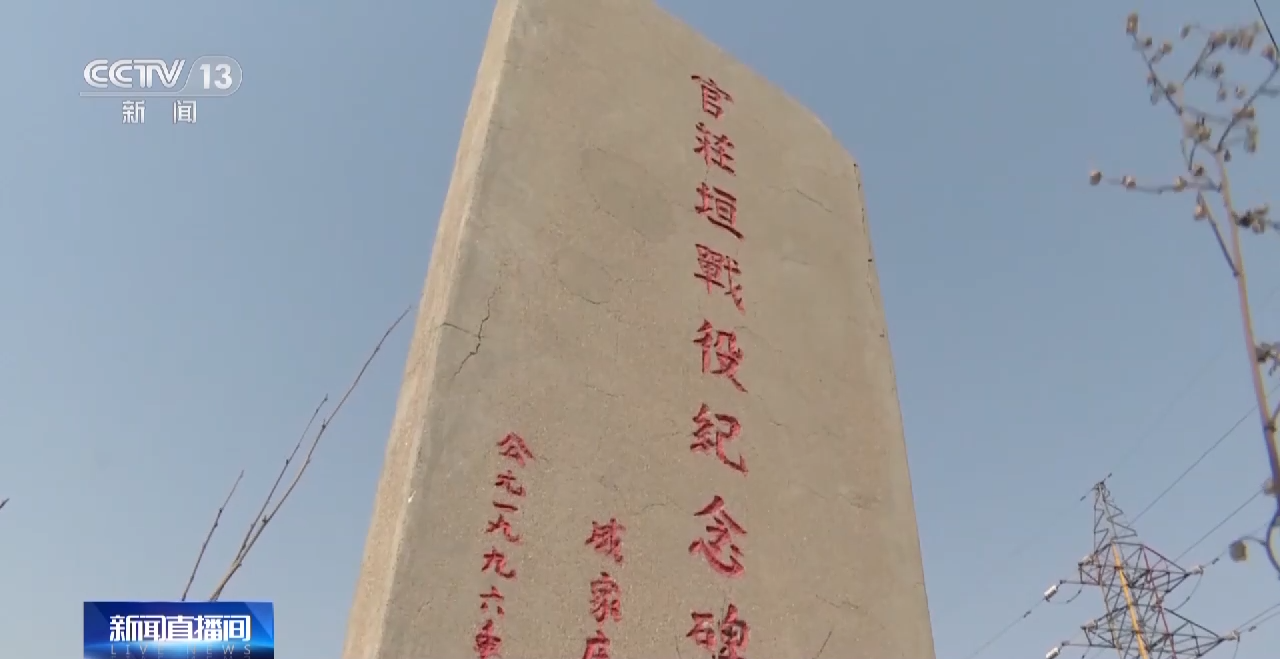 CCTV 13
新闻
官莊垣戰役紀念碑
城家庄
公元一九九六
新闻直播间
LIVE NEWS